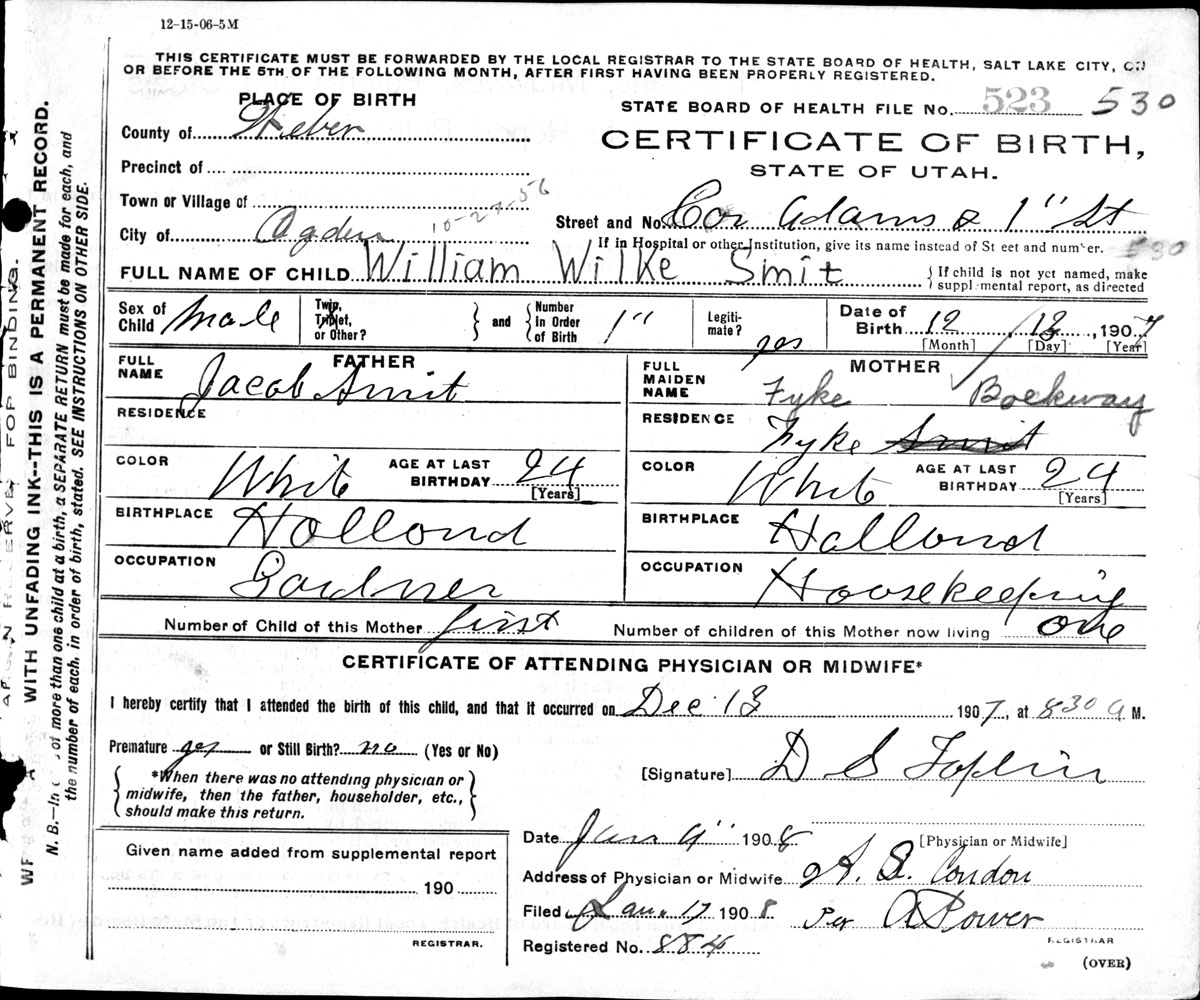 12-15-06-5M
THIS CERTIFICATE MUST BE FORWARDED BY THE LOCAL REGISTRAR TO THE STATE BOARD OF HEALTH, SALT LAKE CITY, ON
OR BEFORE THE 5TH OF THE FOLLOWING MONTH, AFTER FIRST HAVING BEEN PROPERLY REGISTERED.
PLACE OF BIRTH
STATE BOARD OF HEALTH FILE No. 523 530
County of Weber
CERTIFICATE OF BIRTH,
STATE OF UTAH.
Precinct of
Town or Village of
10-27-56
City of Ogden
Street and No. Cor Adams & 1" St
If in Hospital or other Institution, give its name instead of Street and number. 530
FULL NAME OF CHILD William Wilke Smit
{If child is not yet named, make supplemental report, as directed
Sex of Child Male
Twin, Triplet, or Other? } and { Number in Order of Birth 1"
Legitimate? yes
Date of Birth 12 13, 1907
[Month] [Day] [Year]
FATHER
FULL NAME Jacob Smit
RESIDENCE
COLOR White AGE AT LAST BIRTHDAY 24 [Years]
BIRTHPLACE Hollond
OCCUPATION Gardner
MOTHER
FULL MAIDEN NAME Fyke Boekway
RESIDENCE Fyke Smit
COLOR White AGE AT LAST BIRTHDAY 24 [Years]
BIRTHPLACE Hollond
OCCUPATION Housekeeping
Number of Child of this Mother first Number of children of this Mother now living one
CERTIFICATE OF ATTENDING PHYSICIAN OR MIDWIFE*
I hereby certify that I attended the birth of this child, and that it occurred on Dec 13 1907, at 8 30 a M.
Premature yes or Still Birth? no (Yes or No)
{*When there was no attending physician or
midwife, then the father, householder, etc.,
should make this return.}
[Signature] D S
[Physician or Midwife]
Given name added from supplemental report
190
REGISTRAR.
Date Jan 9" 1908
Address of Physician or Midwife A. S. Condon
Filed Jan. 17 1908 Per A Power
REGISTRAR
Registered No. 884
(OVER)
WITH UNFADING INK--THIS IS A PERMANENT RECORD.
N. B.—In of more than one child at a birth, a SEPARATE RETURN must be made for each, and
the number of each, in order of birth, stated. SEE INSTRUCTIONS ON OTHER SIDE.
FOR BINDING.